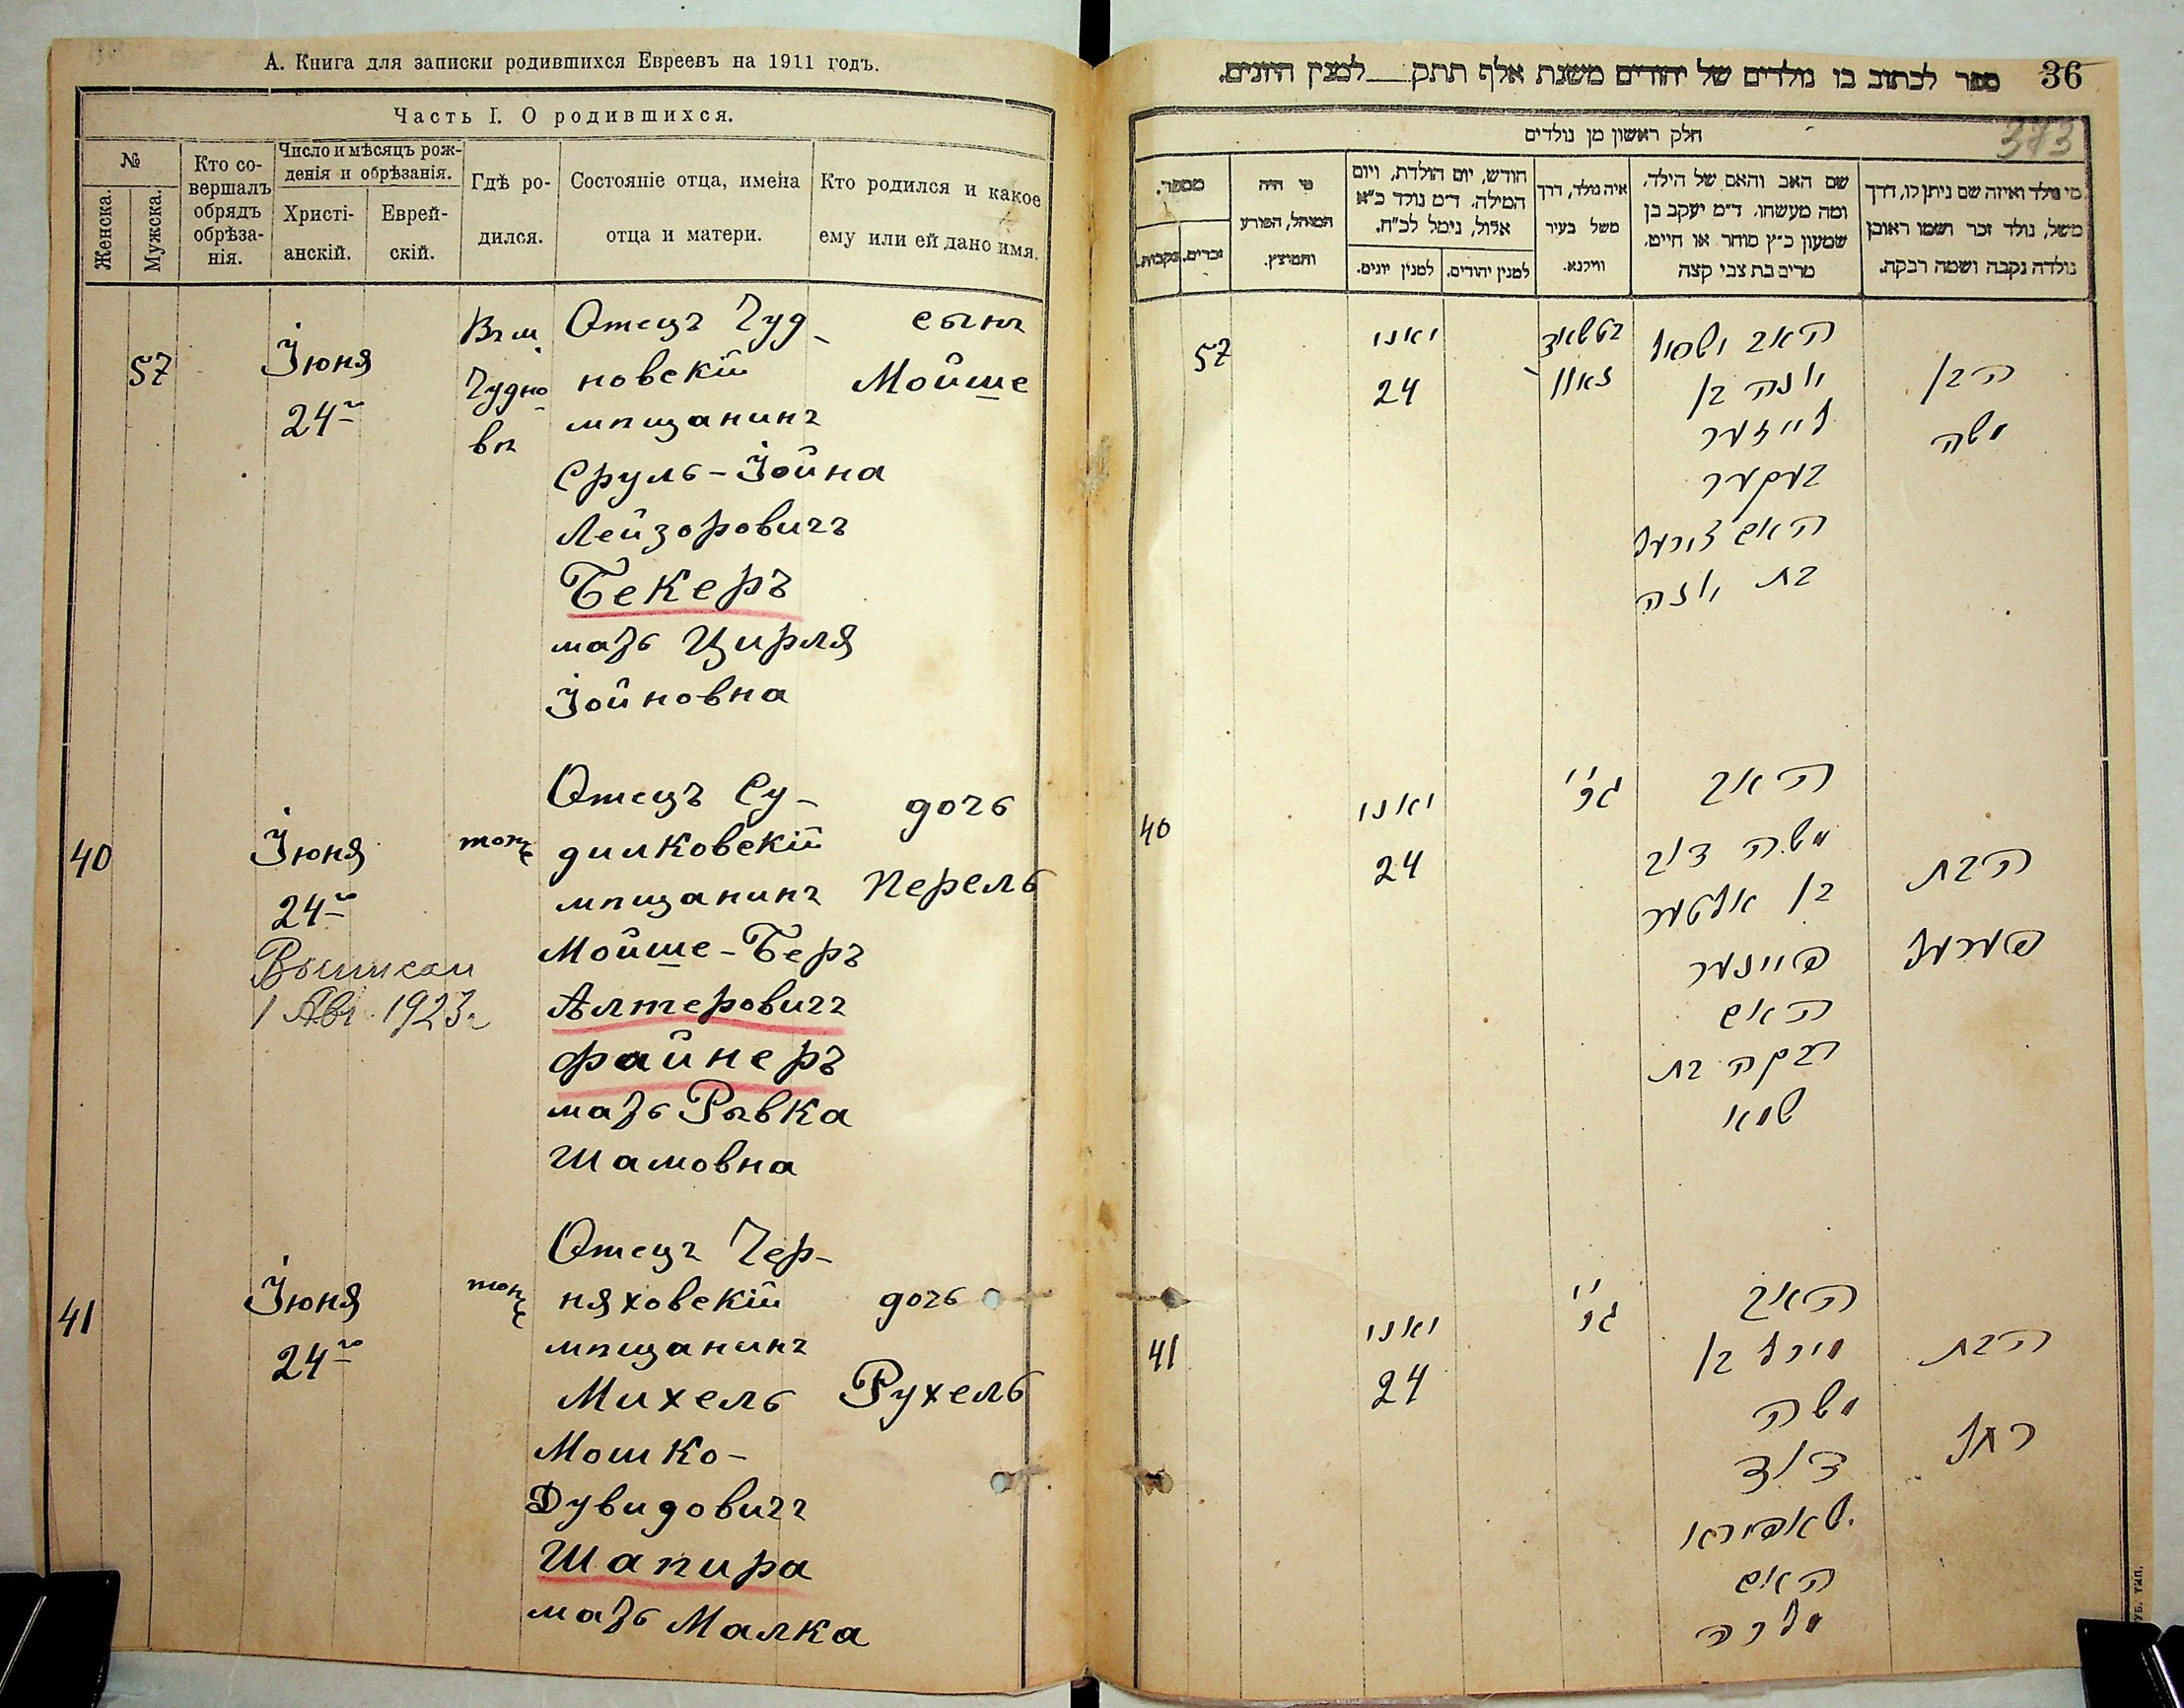 А. Книга для записки родившихся Евреевъ на 1911 годъ.
Часть I. О родившихся.
№
Женска.
Мужска.
Кто со-
вершалъ
обрядъ
обрѣза-
нія.
Число и мѣсяцъ рож-
денія и обрѣзанія.
Христі-
анскій.
Еврей-
скій.
Гдѣ ро-
дился.
Состояніе отца, имена
отца и матери.
Кто родился и какое
ему или ей дано имя.
57
Іюня
24го
Въ м.
Чудно
вѣ
Отецъ Чуд-
новскій
мѣщанинъ
Сруль-Іойна
Лейзоровичъ
Бекеръ
мать Цирля
Іойновна
сынъ
Мойше
40
Іюня
24го
Выписан
1 Авг. 1923г
тоже
Отецъ Су-
дилковскій
мѣщанинъ
Мойше-Беръ
Алтеровичъ
файнеръ
мать Рывка
Шамовна
дочь
Перель
41
Іюня
24го
тоже
Отецъ Чер-
няховскій
мѣщанинъ
Михель
Мошко-
Дувидовичъ
Шапира
мать Малка
дочь
Рухель
ספר לכתוב בו נולדים של יהודים משנת אלף תתק למנין היונים.
36
373
חלק ראשון מן נולדים
מי נולד ואיזה שם ניתן לו, דרך
משל, נולד זכר ושמו ראובן
נולדה נקבה ושמה רבקה.
שם האב והאם של הילד,
ומה מעשהו. ד״מ יעקב בן
שמעון כ״ץ סוחר או חייט,
מרים בת צבי קצה
איה נולד, דרך
משל בעיר
ווילנא.
חודש, יום הולדת, ויום
המילה. ד״מ נולד כ״א
אלול, נימל לכ״ח.
למנין יהודים.
למנין יונים.
מי היה
המוהל, הפורע
והמוצץ.
מספר.
זכרים.
נקבות.
57
יאני
24
האב
יונה בן
לייזער
בעקער
האם צירעל
בת יונה
הבן
משה
40
יאני
24
האב
משה דוב
בן אלטער
פיינער
האם
רבקה בת
הבת
פערעל
41
יאני
24
האב
בן
משה
דוד
שאפירא
האם
מלכה
הבת
רחל